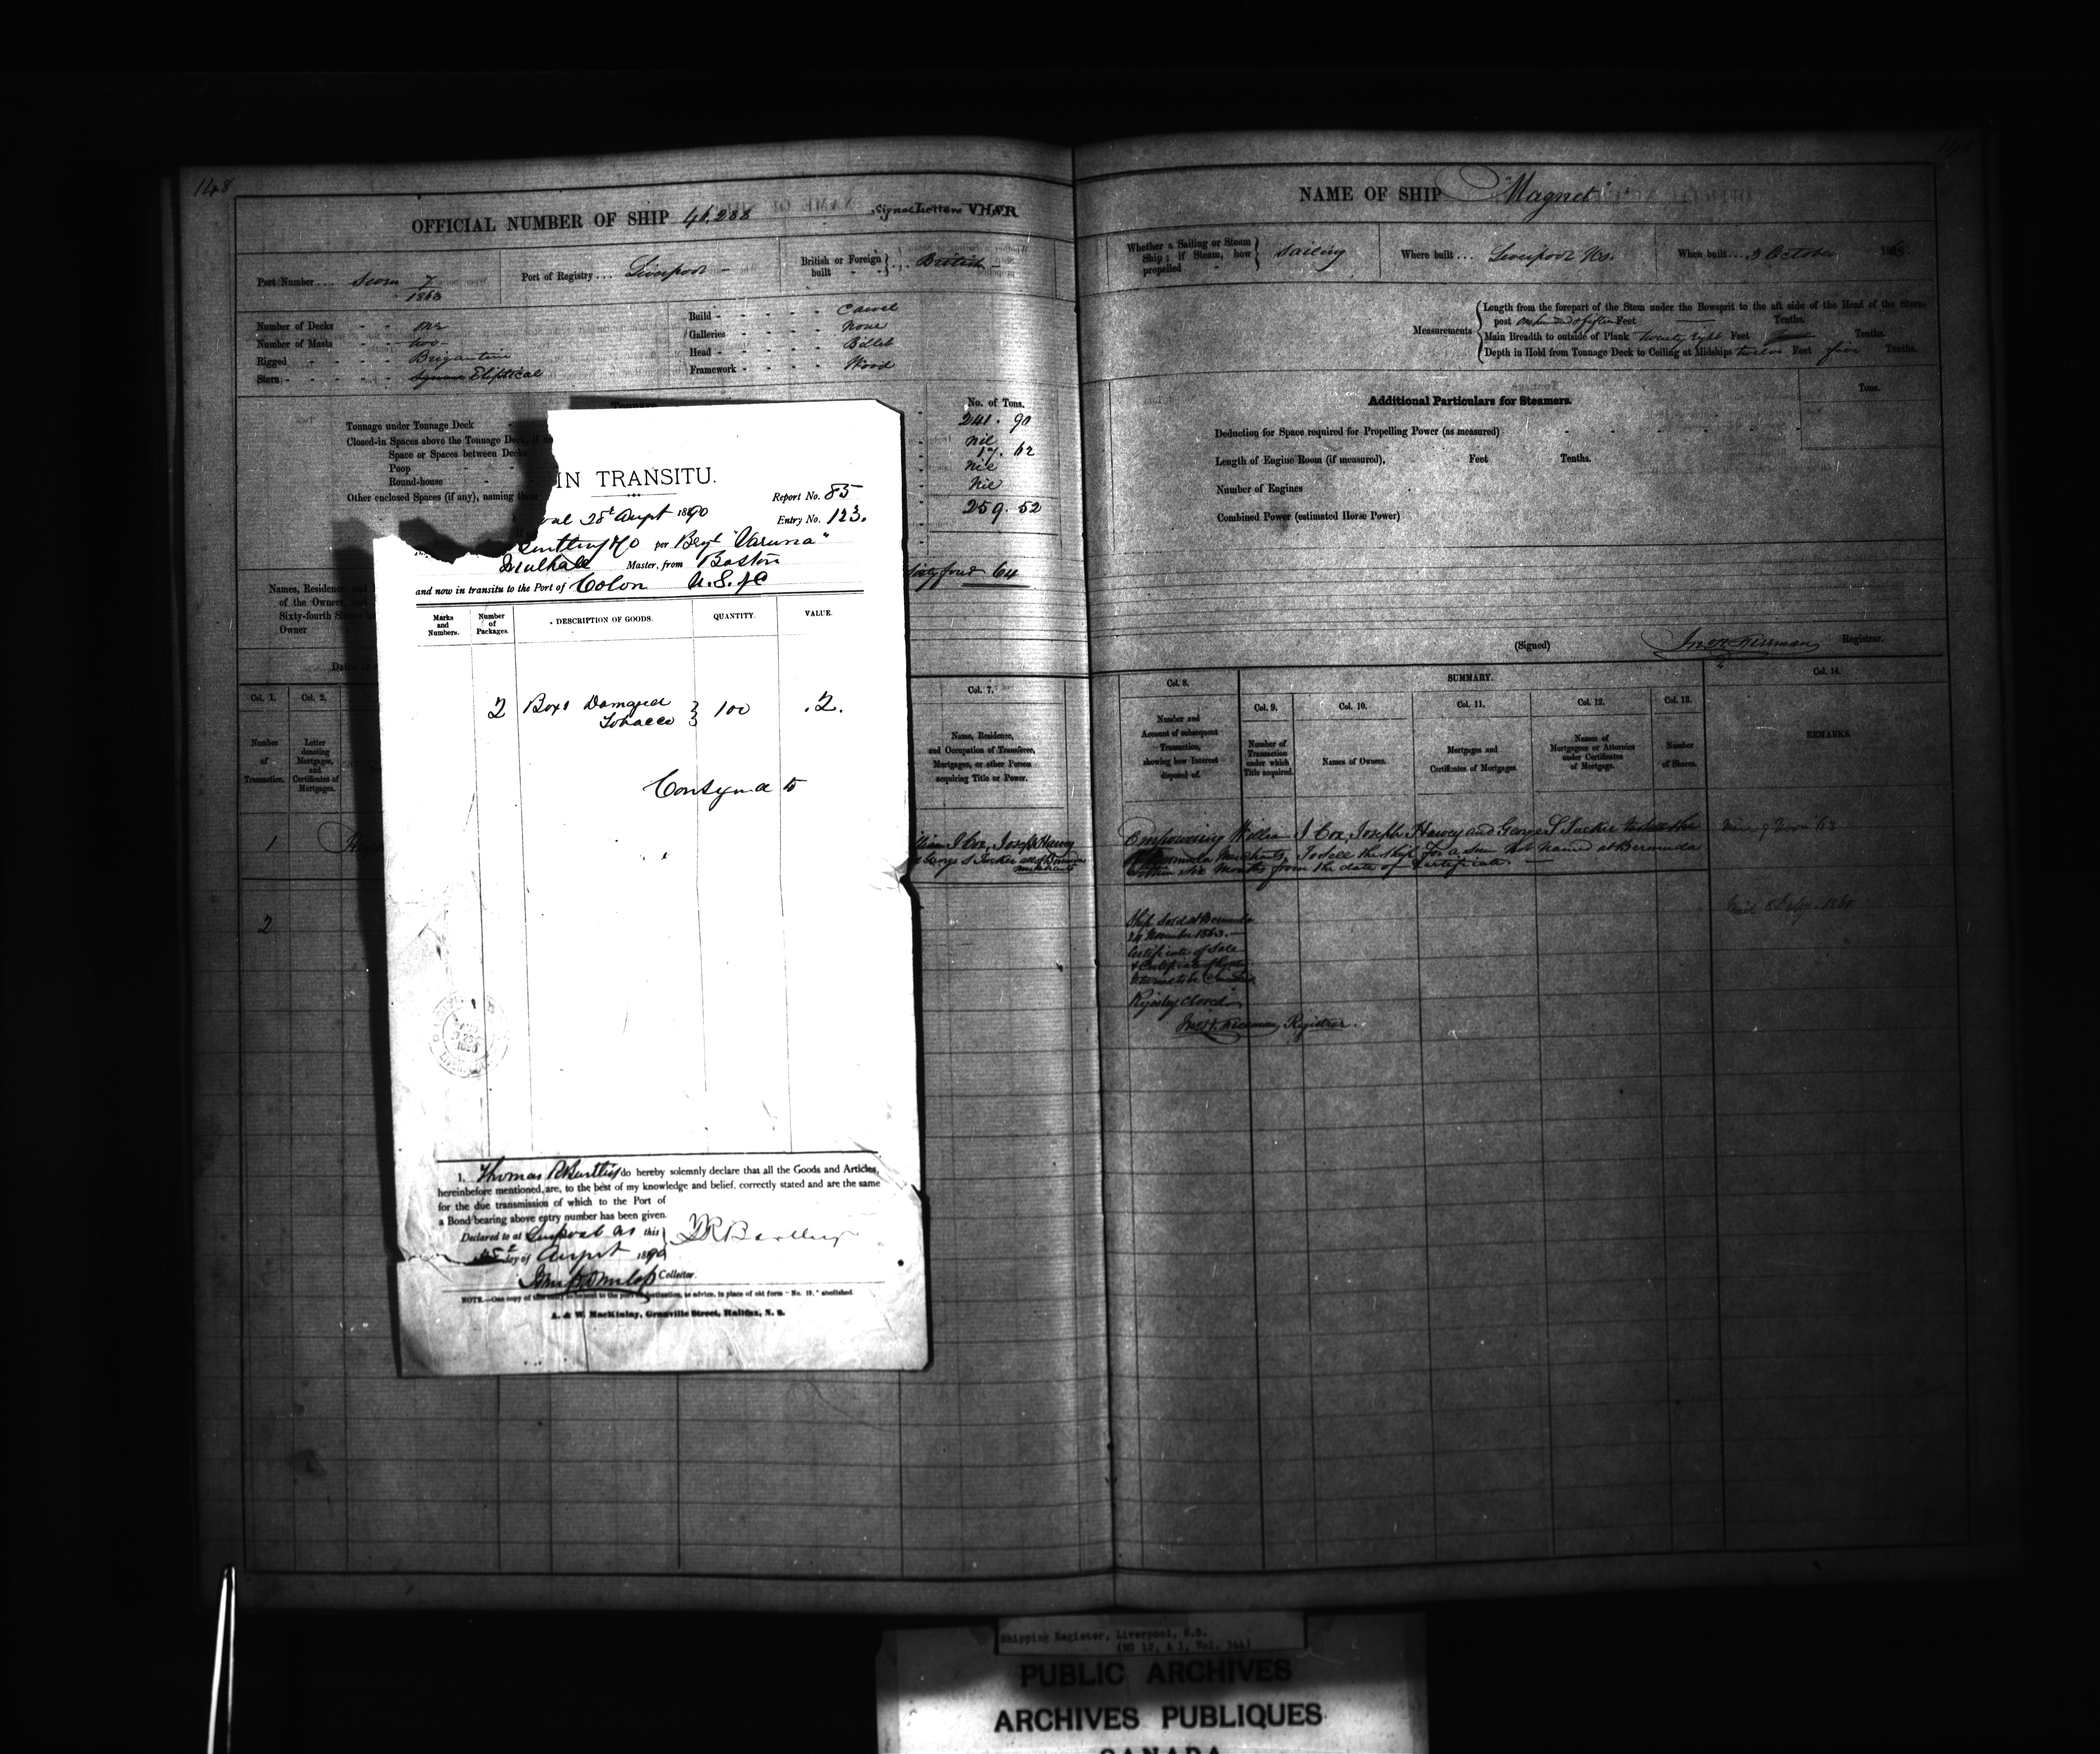 148
OFFICIAL NUMBER OF SHIP 46,288 Signal Letters
NAME OF SHIP "Magnet"
Port Number ... Seven 7/1863 Port of Registry ... Liverpool British or Foreign built British
Whether a Sailing or Steam Ship; if Steam, how propelled Sailing Where built ... Liverpool N.S. When built ... 3 October
Number of Decks One
Number of Masts two
Rigged Brigantine
Stern Eliptical
Build Carvel
Galleries None
Head Billet
Framework Wood
Measurements
Length from the forepart of the Stem under the Bowsprit to the aft side of the Head of the Stern-
post Feet Tenths.
Main Breadth to outside of Plank twenty eight Feet Tenths.
Depth in Hold from Tonnage Deck to Ceiling at Midships twelve Feet five Tenths.
No. of Tons.
Tonnage under Tonnage Deck 241. 90
Closed-in Spaces above the Tonnage Deck, if
Space or Spaces between Decks nil
Poop 17. 62
Round-house Nil
Other enclosed Spaces (if any), naming Nil
259. 52
Additional Particulars for Steamers.
Tons.
Deduction for Space required for Propelling Power (as measured)
Length of Engine Room (if measured), Feet Tenths.
Number of Engines
Combined Power (estimated Horse Power)
Names, Residence,
of the Owners,
Sixty-fourth
Owner
64
(Signed) Registrar.
IN TRANSITU.
Report No. 85
Entry No. 123.
1890
per "Varuna"
Master, from Boston
and now in transitu to the Port of Colon U.S.
Marks and Numbers.
Number of Packages.
DESCRIPTION OF GOODS.
QUANTITY.
VALUE.
2 Boxs Damaged Tobacco 100 .2.
I, Thomas R Bartling do hereby solemnly declare that all the Goods and Articles,
hereinbefore mentioned, are, to the best of my knowledge and belief, correctly stated and are the same
for the due transmission of which to the Port of
a Bond bearing above entry number has been given.
Declared to at this
day of August 1890
Collector.
NOTE.—One copy of this entry to be sent to the port of destination, as advice, in place of old form "No. 19," abolished.
A. & W. MacKinlay, Granville Street, Halifax, N. S.
Col. 1. Col. 2. Col. 7. Col. 8. SUMMARY. Col. 14.
Col. 9. Col. 10. Col. 11. Col. 12. Col. 13.
Number of Transaction.
Letter denoting Mortgages, and Certificates of Mortgages.
Name, Residence, and Occupation of Transferee, Mortgagee, or other Person acquiring Title or Power.
Number and Account of subsequent Transaction, showing how Interest disposed of.
Number of Transaction under which Title acquired.
Names of Owners.
Mortgages and Certificates of Mortgages.
Names of Mortgagees or Attornies under Certificates of Mortgage.
Number of Shares.
REMARKS.
1
William J Cox, Joseph Harvey
& George S Tucker all of Bermuda
merchants
Empowering William J Cox, Joseph Harvey and George S Tucker
Bermuda Merchants, To sell the ship for a sum not named at Bermuda
within six months from the date of Certificate
2
Ship Sold at Bermuda
24 November 1863.
Certificate of Sale
Registry closed
Registrar.
Shipping Register, Liverpool, N.S.
(RG 12, A 1, Vol. 344)
PUBLIC ARCHIVES
ARCHIVES PUBLIQUES
CANADA